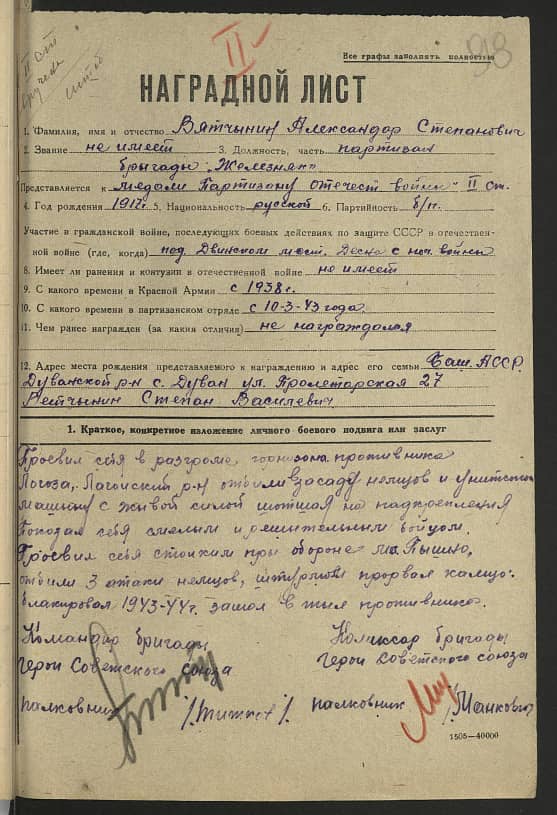 II
98
Все графы заполнять полностью
НАГРАДНОЙ ЛИСТ
1. Фамилия, имя и отчество Вятчынин Александар Степанович
2. Звание не имеет 3. Должность, часть партизан
бригады „Железняк“
Представляется к медали Партизану отечест войны II ст.
4. Год рождения 1917г. 5. Национальность русской 6. Партийность б/п.
Участие в гражданской войне, последующих боевых действиях по защите СССР в отечествен-
ной войне (где, когда) под Двинском мест. Десна с нач. войны
8. Имеет ли ранения и контузии в отечественной войне не имеет
9. С какого времени в Красной Армии с 1938г.
10. С какого времени в партизанском отряде с 10-3-43 года.
11. Чем ранее награжден (за какия отличия) не награждался
12. Адрес места рождения представляемого к награждению и адрес его семьи Баш. АССР.
Дуванской р-н с. Дуван ул. Пролетарская 27
Вятчынин Степан Василевич
1. Краткое, конкретное изложение личного боевого подвига или заслуг
Проевил себя в разгроме горнизона противника
Логоза, Лагойский р-н отбили взасаду немцов и
машыну с живой силой шотшая на подкрепления
Показал себя смелым и решительным войцом.
Проевил себя стойким при обороне м. Пышно,
отбили 3 атаки немцов, штурмом прорвал
блакировал 1943-44г. зашол в тыл противника.
Командар бригады Комиссар бригады
герои Советского союза герои Советского союза
палковник /Титков/. палковник /Манкович
1505—40000